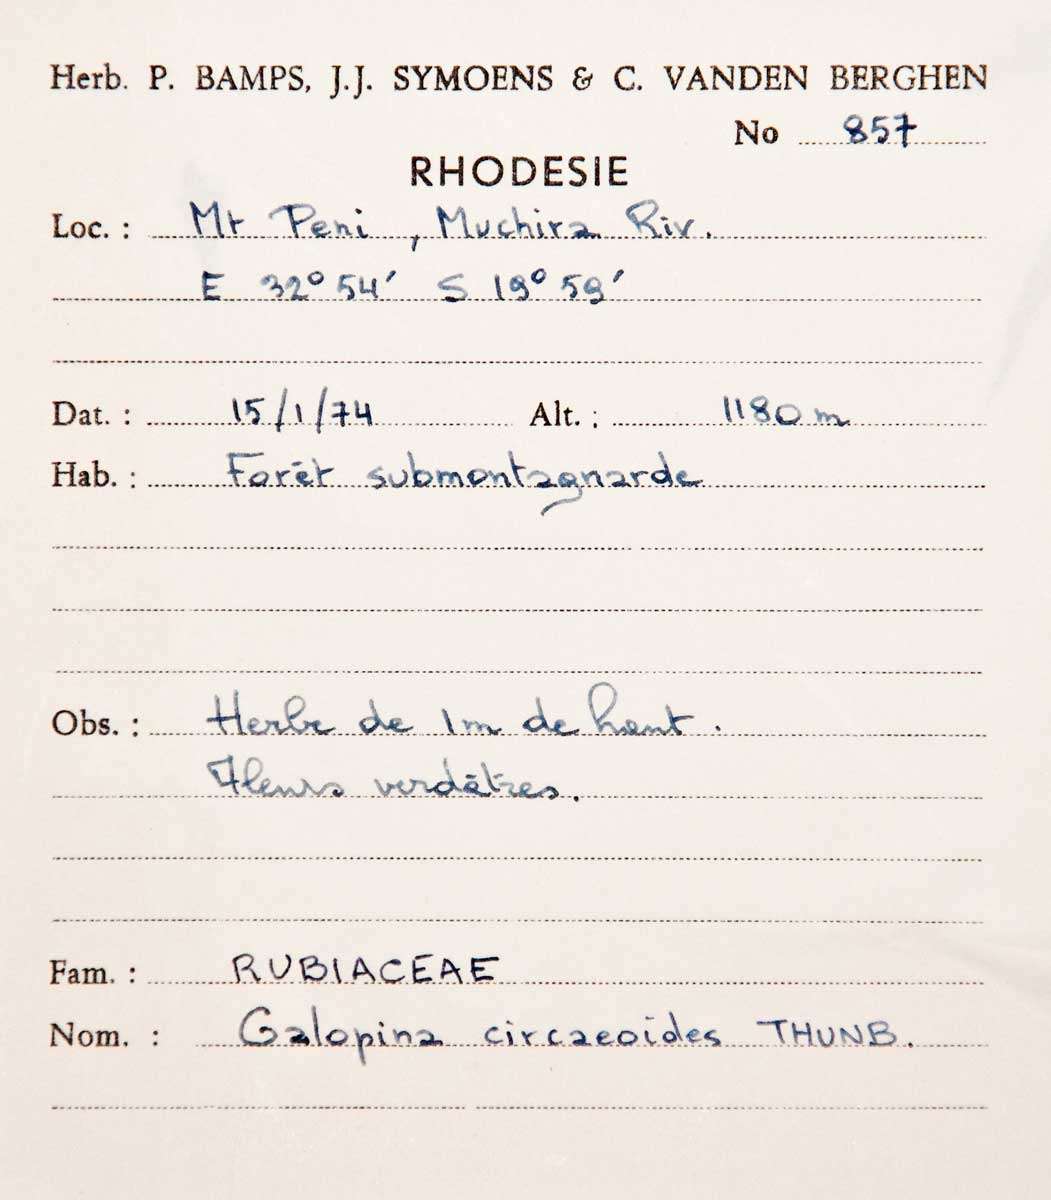 Herb. P. BAMPS, J.J. SYMOENS & C. VANDEN BERGHEN
No 857
RHODESIE
Loc. : Mt Peni, Muchira Riv.
E 32° 54' S 19° 59'
Dat. : 15/1/74 Alt. : 1180 m
Hab. : Forêt submontagnarde
Obs. : Herbe de 1 m de haut.
Fleurs verdâtres.
Fam. : RUBIACEAE
Nom. : Galopina circaeoides THUNB.